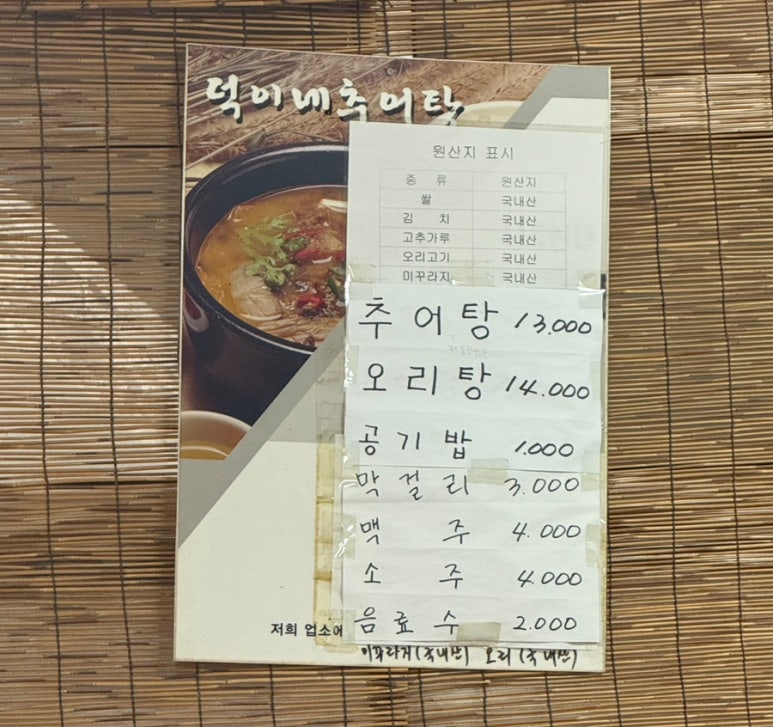 덕이네추어탕
원산지 표시
종 류 원산지
쌀 국내산
김 치 국내산
고추가루 국내산
오리고기 국내산
미꾸라지 국내산
추어탕 13.000
오리탕 14.000
공기밥 1.000
막걸리 3.000
맥 주 4.000
소 주 4.000
음료수 2.000
저희 업소에
미꾸라지(국내산) 오리(국내산)